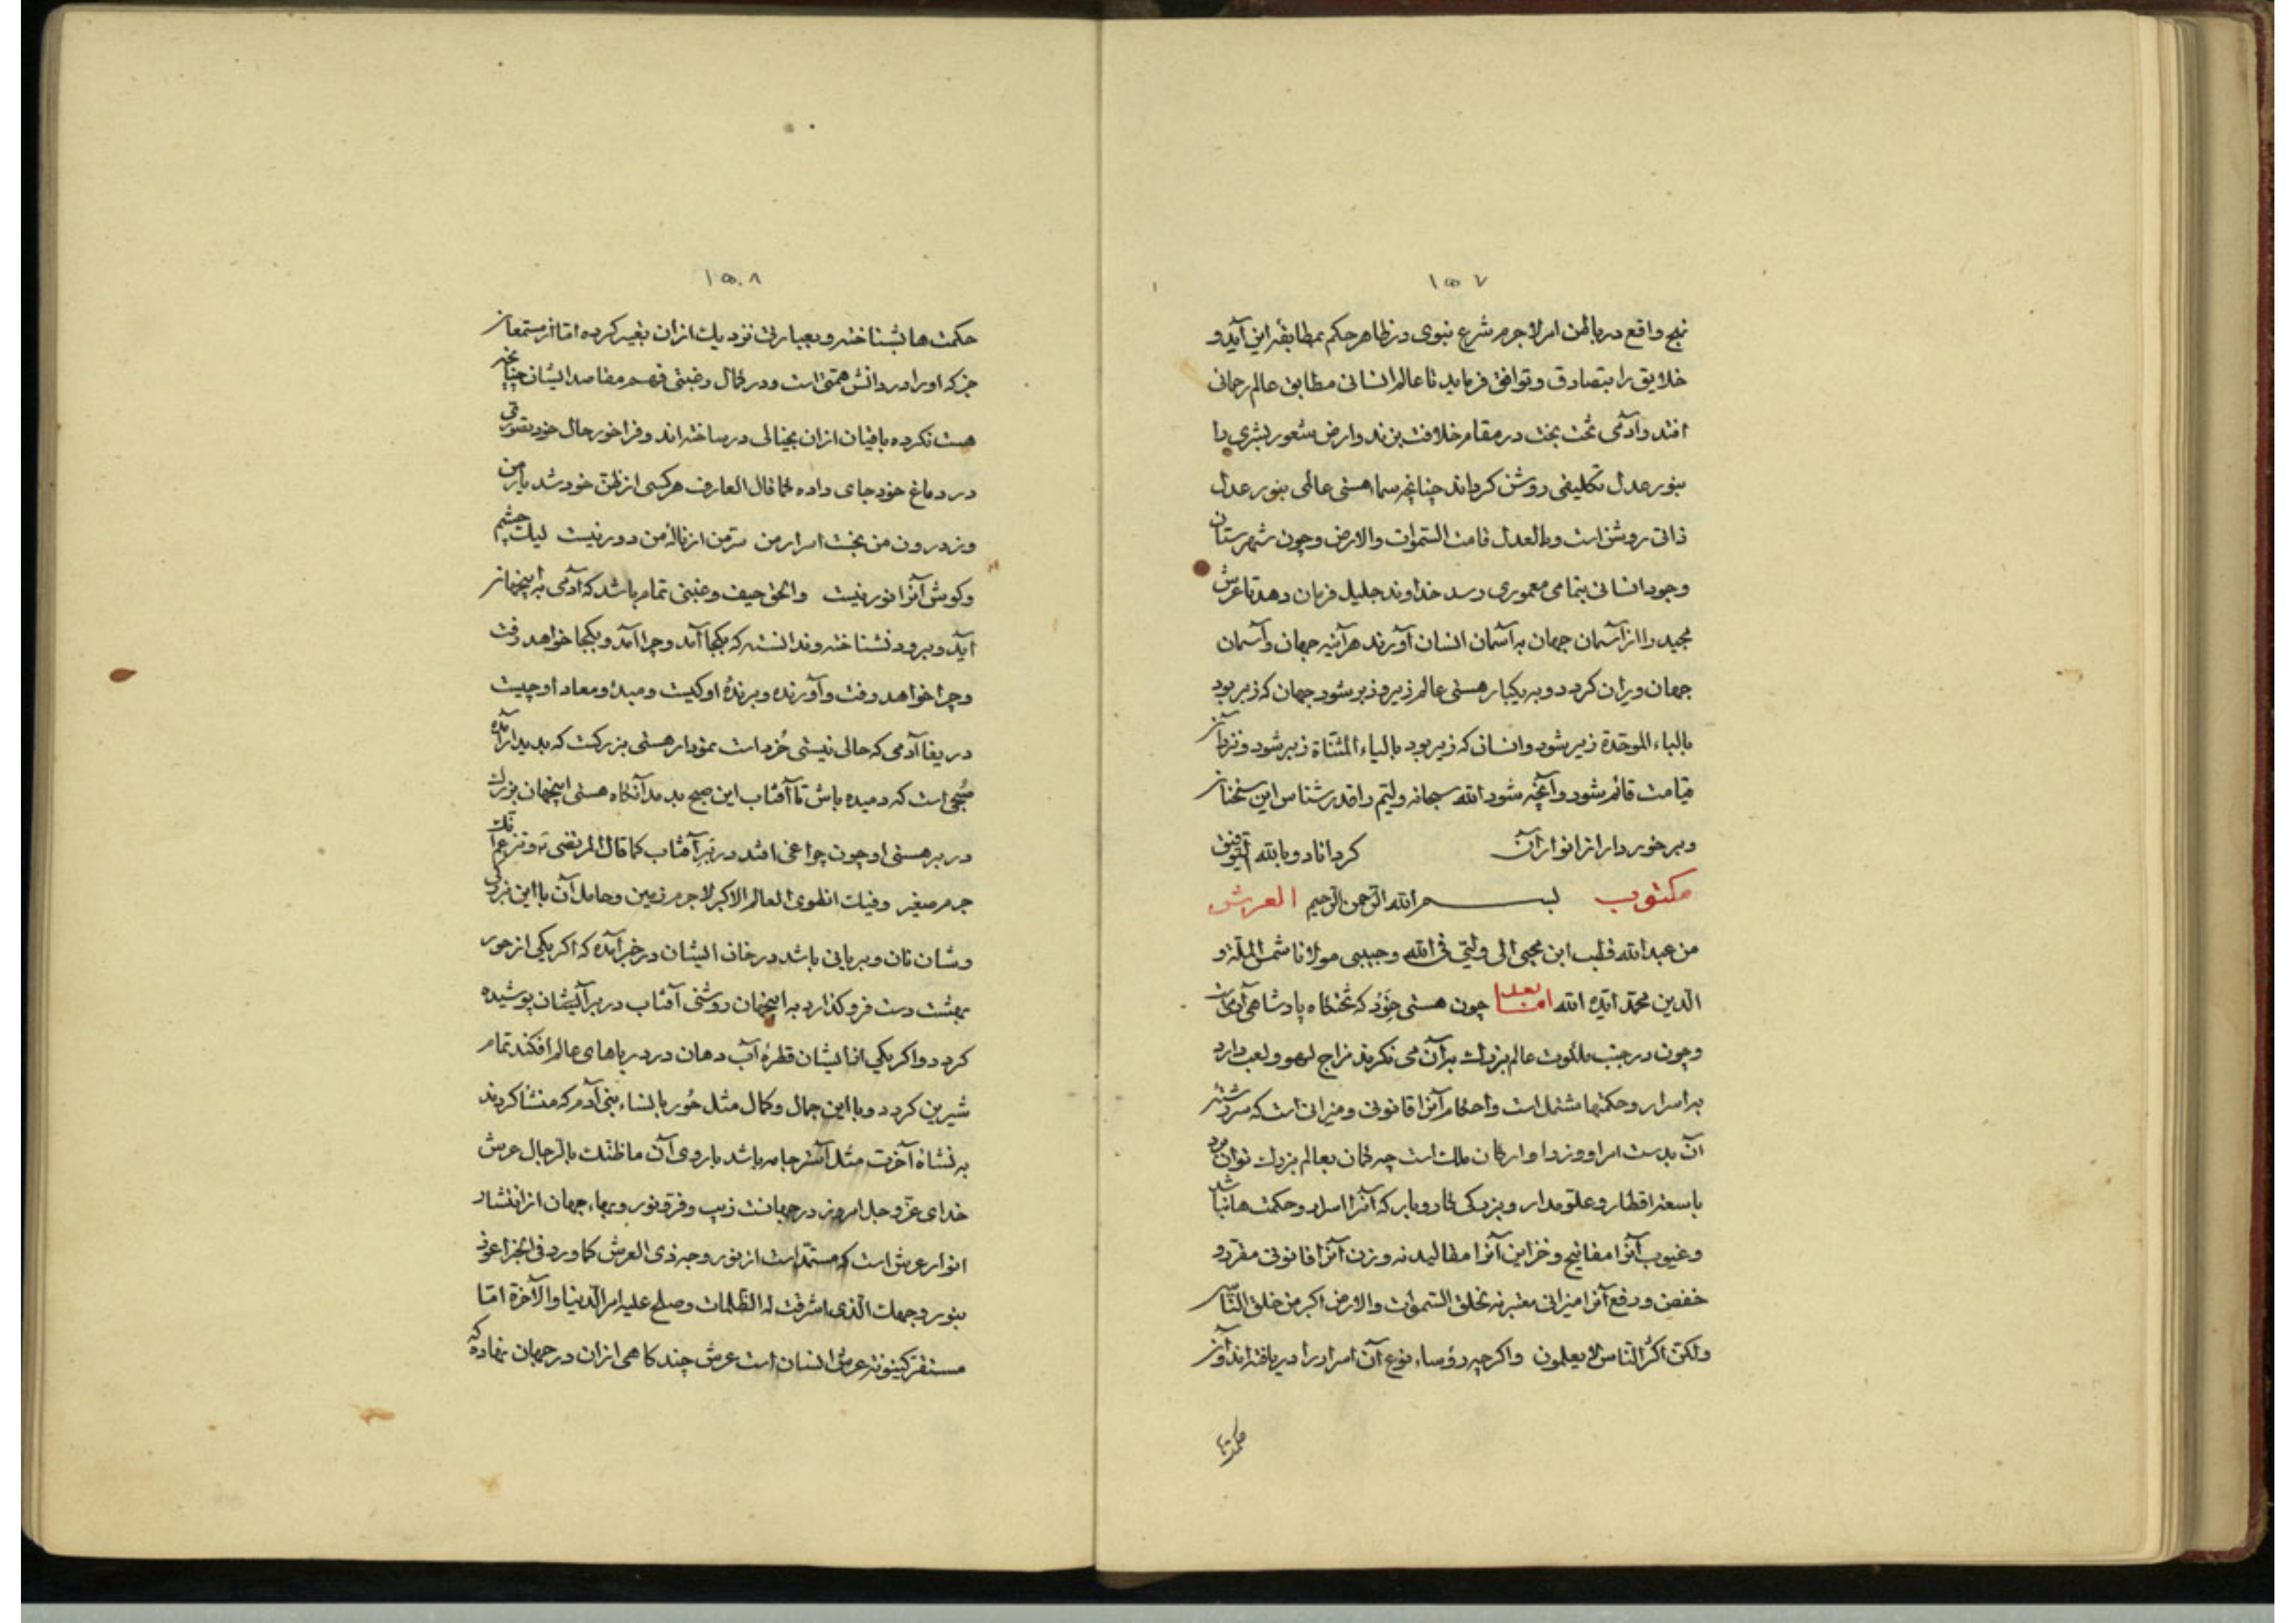 ۱۵۷
نهج واقع در باطن امر لاجرم شرع نبوی در ظاهر حکم بمطابقهٔ این آید و
خلایق را بتصادق و توافق فرماید تا عالم انسانی مطابق عالم رحمانی
افتد و آدمی تخت بخت در مقام خلافت بزند و ارض شعور بشری را
بنور عدل تکلیفی روشن کرداند چنانچه سماء هستی عالمی بنور عدل
ذاتی روشن است و بالعدل قامت السموات والارض و چون شهرستان
وجود انسانی بتمامی معموری رسد خداوند جلیل فرمان دهد تا عرش
مجید را از آسمان جهان به آسمان انسان آورند هرآینه جهان و آسمان
جهان ویران کردد و به یکبار هستی عالم زیر و زبر شود جهان که زبر بود
بالباء الموحدة زیر شود و انسان که زیر بود بالیاء المثناة زبر شود و نزد آن
قیامت قائم شود و آنچه شود الله سبحانه ولیّم را قدرشناس این سخنان
و برخوردار از انوار آن کرداناد و بالله التوفیق
مکتوب بسم الله الرحمن الرحیم العرش
من عبدالله قطب ابن محیی الی ولیّی فی الله و حبیبی مولانا شمس الملة و
الدین محمد ایّده الله اما بعد چون هستی خُرد که تختکاه پادشاهی آدمی است
و چون در جنب ملکوت عالم بزرك بر آن می نکرند مزاج لهو و لعب دارد
بر اسرار و حکمتها مشتمل است و احکام آنرا قانونی و میزانی است که سررشتهٔ
آن بدست امرا و وزرا و ارکان ملك است چه کمان بعالم بزرك توان برد
با سعت اقطار و علوّ مدار و بزرکی کار و بار که آنرا اسرار و حکمت ها نباشد
و غیوب آنرا مفاتیح و خزاین آنرا مقالید نه و زن آنرا قانونی مقرر و
خفض و رفع آنرا میزانی معتبر نه لخلق السموات والارض اکبر من خلق الناس
ولکن اکثر الناس لا یعلمون و اکرچه رؤساء نوع آن اسرار را دریافته اند و آن
حکمتها
۱۵۸
حکمت ها بشناخته و بعبارتی نزدیك ازان تعبیر کرده اما از مستمعان
جز که او را در دانش همتی است و در کمال رغبتی فهم مقاصد ایشان چنانچه
هست نکرده باقیان ازان بخیالی در ساخته اند و فراخور حال خود تصوّرتی
در دماغ خود جای داده کما قال العارف هر کسی از ظن خود شد یار من
وز درون من نجست اسرار من سرّ من از نالهٔ من دور نیست لیك چشم
و کوش آنرا نور نیست و الحق حیف و غبنی تمام باشد که آدمی به اینجهان
آید و برود نشناخته و ندانسته که بکجا آمد و چرا آمد و بکجا خواهد رفت
و چرا خواهد رفت و آورنده و برندهٔ او کیست و مبدء و معاد او چیست
دریغا آدمی که حالی نیستی خُرد است نمودار هستی بزرکست که پدیدار آمده
صُبحی است که دمیده باش تا آفتاب این صبح بدمد آنکاه هستی اینجهان بزرك
در بر هستی او چون چراغی افتد در بر آفتاب کما قال المرتضی و تزعم انك
جرم صغیر و فیك انطوی العالم الاکبر لاجرم زمین و حامل آن با این بزرکی
و شان نان و بریانی باشد در خان ایشان در خبر آمده که اکر یکی از حور
بهشت دست فرو کذارد به اینجهان روشنی آفتاب در بر آن ایشان پوشیده
کردد و اکر یکی از ایشان قطرهٔ آب دهان در دریاهای عالم افکند تمام
شیرین کردد و با این جمال و کمال مثل حُور با نساء بنی آدم که منشا کردند
به نشاة آخرت مثل آستر جامه باشد با روی آن ما ظنك بالرجال عرش
خدای عزّ و جل امروز در جهانست زیب و فر و نور و بهاء جهان از انتشار
انوار عرش است که مستمدّ است از نور وجه ذی العرش کما ورد فی الخبر اعوذ
بنور وجهك الذی اشرقت له الظلمات و صلح علیه امر الدنیا والآخرة اما
مستقر کینونة عرش انسان است عرش چند کاهی ازان در جهان نهاده که